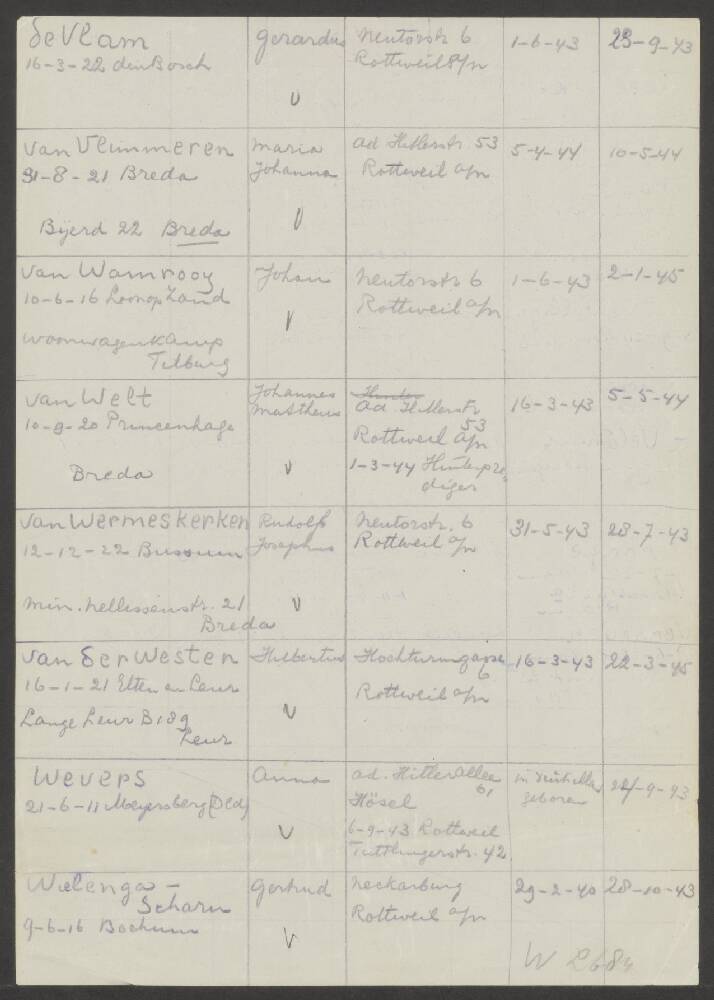 de Vlam Gerardus Neutorstr 6 1-6-43 23-9-43
16-3-22 den Bosch Rottweil a/n
V
van Vlimmeren Maria ad Hitlerstr. 53 5-4-44 10-5-44
31-8-21 Breda Johanna Rottweil a/n
V
Bijerd 22 Breda
van Wamrooy Johan Neutorstr 6 1-6-43 2-1-45
10-6-16 Loonop Zand Rottweil a/n
V
woonwagenkamp
Tilburg
van Welt Johannes Mattheus
ad Hitlerstr 16-3-43 5-5-44
10-8-20 Princenhage 53
Rottweil a/n
Breda V 1-3-44
van Wermeskerken Rudolf Neutorstr. 6 31-5-43 28-7-43
12-12-22 Bussum Josephus Rottweil a/n
min. Nellissenstr. 21 V
Breda
van der Westen Hubertus Hochturmgasse 16-3-43 22-3-45
6
16-1-21 Etten en Leur Rottweil a/n
Lange Leur B189 V
Leur
Wevers Anna ad. Hitlerallee
61 geboren
21-6-11 (Dld) Hösel
V 6-9-43 Rottweil
Tuttlingerstr. 42
Wielenga - Gertrud Neckarburg 29-2-40 28-10-43
Scharn Rottweil a/n
9-6-16 Bochum
V
W 2684